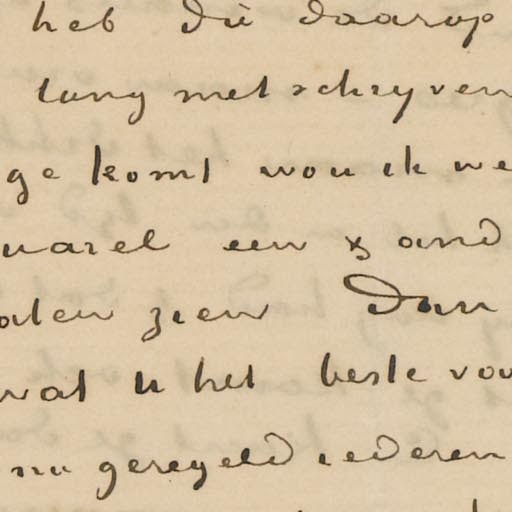 heb dit daarop
lang met schryven
ge komt wou ik we
uarel een & and
aten zien Dan
wat u het beste voo
nu geregeld iederen